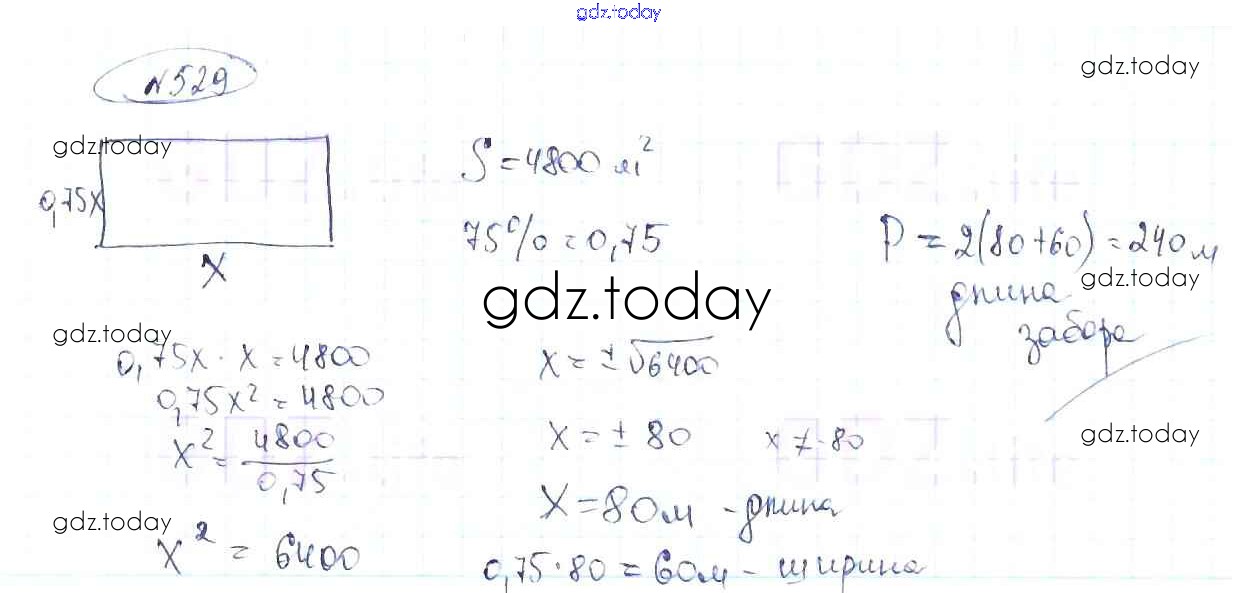 gdz.today
№529
gdz.today
gdz.today
0,75x
x
S = 4800 м²
75% = 0,75
P = 2(80+60) = 240 м
длина
забора
gdz.today
gdz.today
gdz.today
0,75x · x = 4800
0,75x² = 4800
x² = 4800/0,75
x² = 6400
gdz.today
x = ±√6400
x = ± 80
x ≠ -80
x = 80м - длина
0,75·80 = 60м - ширина
gdz.today